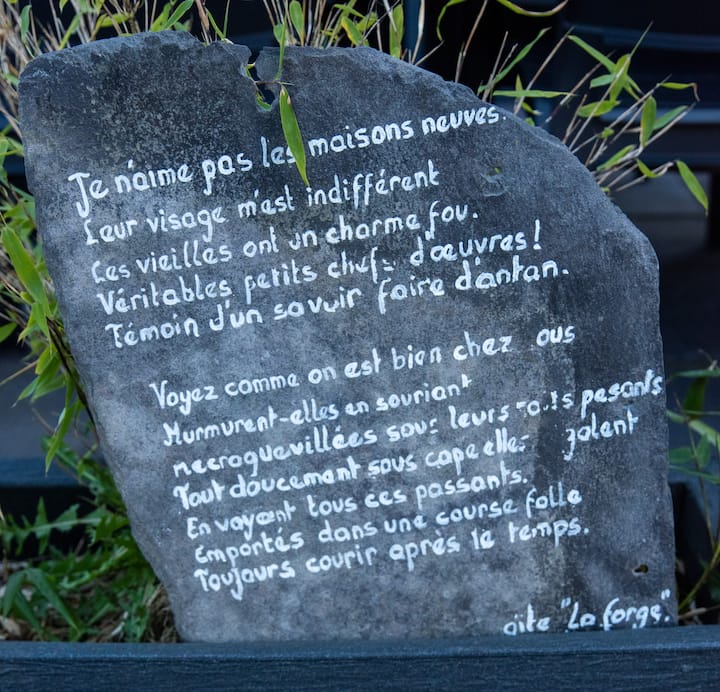 Je n'aime pas les maisons neuves.
Leur visage m'est indifférent
Les vieilles ont un charme fou.
Véritables petits chefs d'œuvres!
Témoin d'un savoir faire d'antan.
Voyez comme on est bien chez ous
Murmurent-elles en souriant
necroquevillées sous leurs pesants
Tout doucement sous cape elles
En voyant tous ces passants.
Emportés dans une course folle
Toujours courir après le temps.
gîte "La forge".